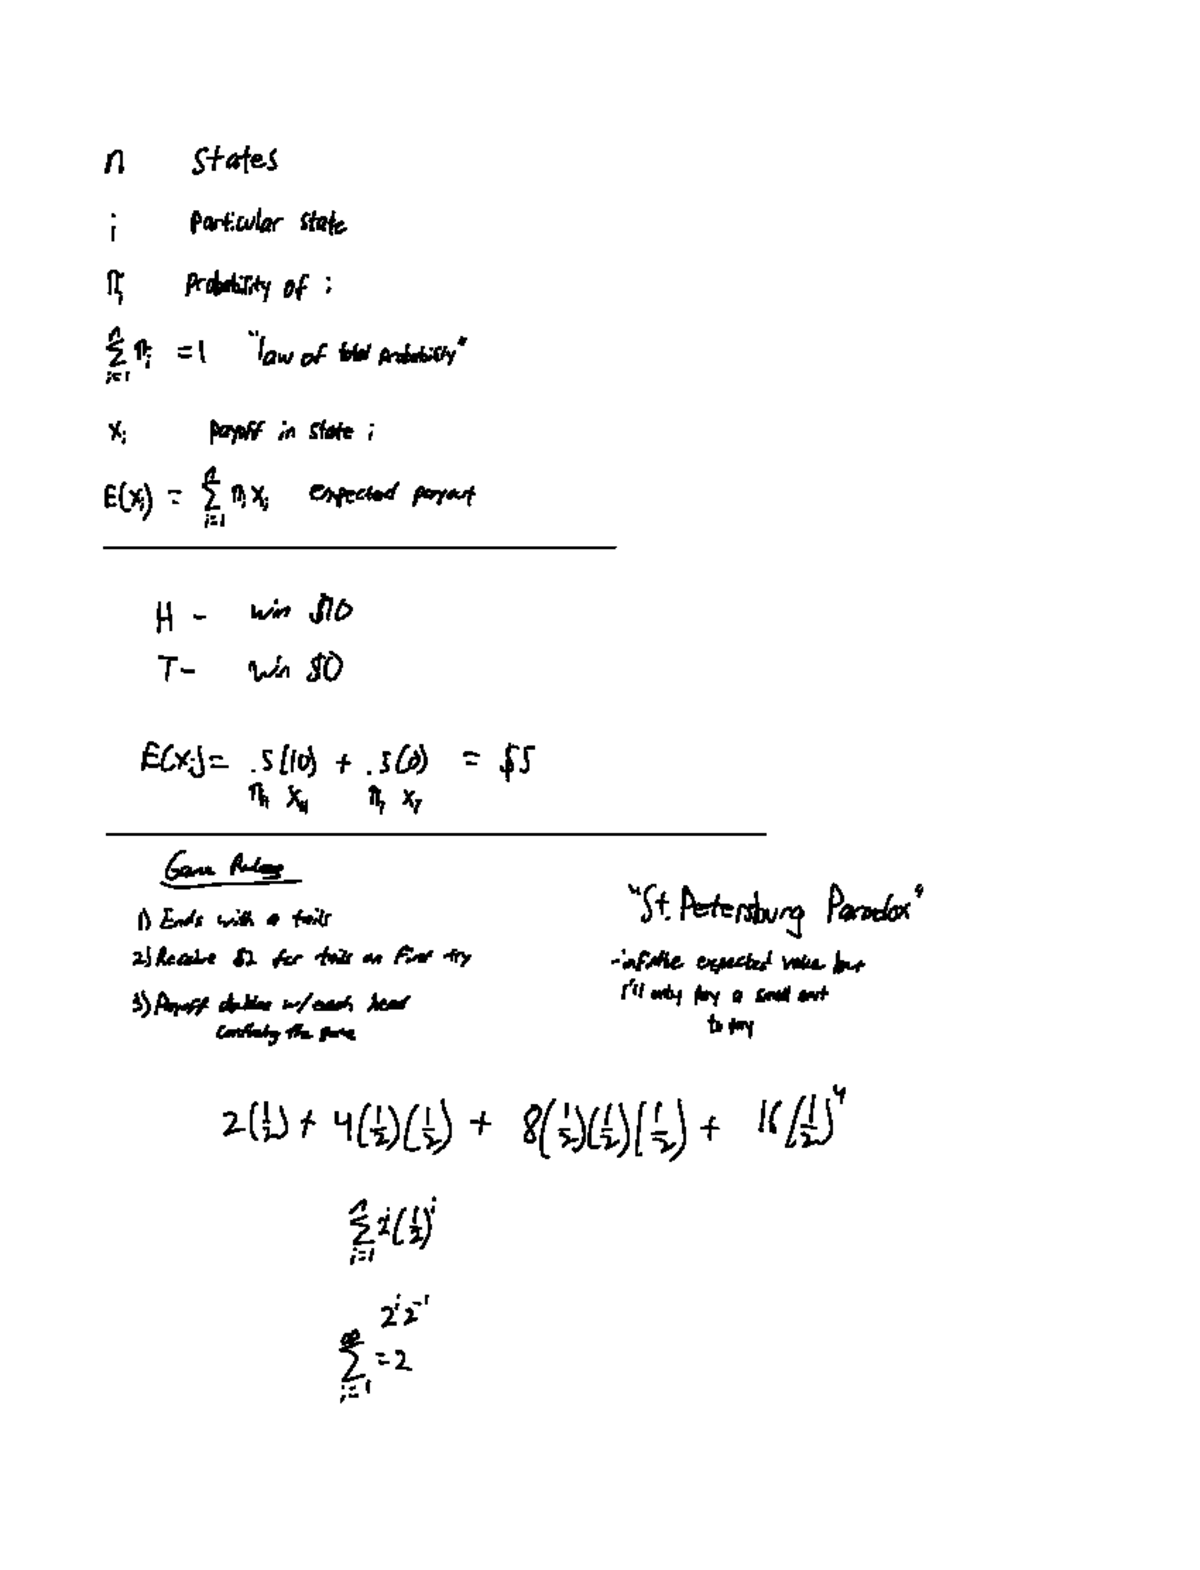 n States
i Particular state
πᵢ Probability of i
∑ᵢ₌₁ⁿ πᵢ = 1 "law of total probability"
xᵢ payoff in state i
E(xᵢ) = ∑ᵢ₌₁ⁿ πᵢ xᵢ expected payout
H - win $10
T - win $0
E(xᵢ) = .5(10) + .5(0) = $5
π_H x_H π_T x_T
Game Rules
1) Ends with a tails
2) Receive $2 for tails on first try
3) Payoff doubles w/ each head
continuing the game
"St. Petersburg Paradox"
- infinite expected value but
I'll only pay a small amt
to play
2(1/2) + 4(1/2)(1/2) + 8(1/2)(1/2)(1/2) + 16(1/2)⁴
∑ᵢ₌₁ⁿ 2ⁱ(1/2)ⁱ
2ⁱ2⁻ⁱ
∑ᵢ₌₁^∞ = 2